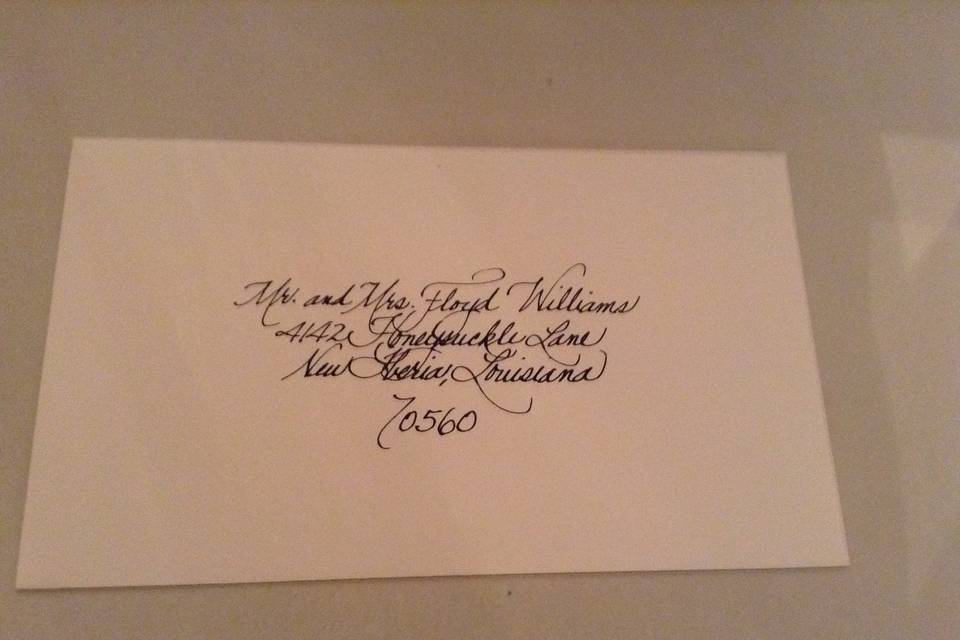 Mr. and Mrs. Floyd Williams
4142 Honeysuckle Lane
New Iberia, Louisiana
70560